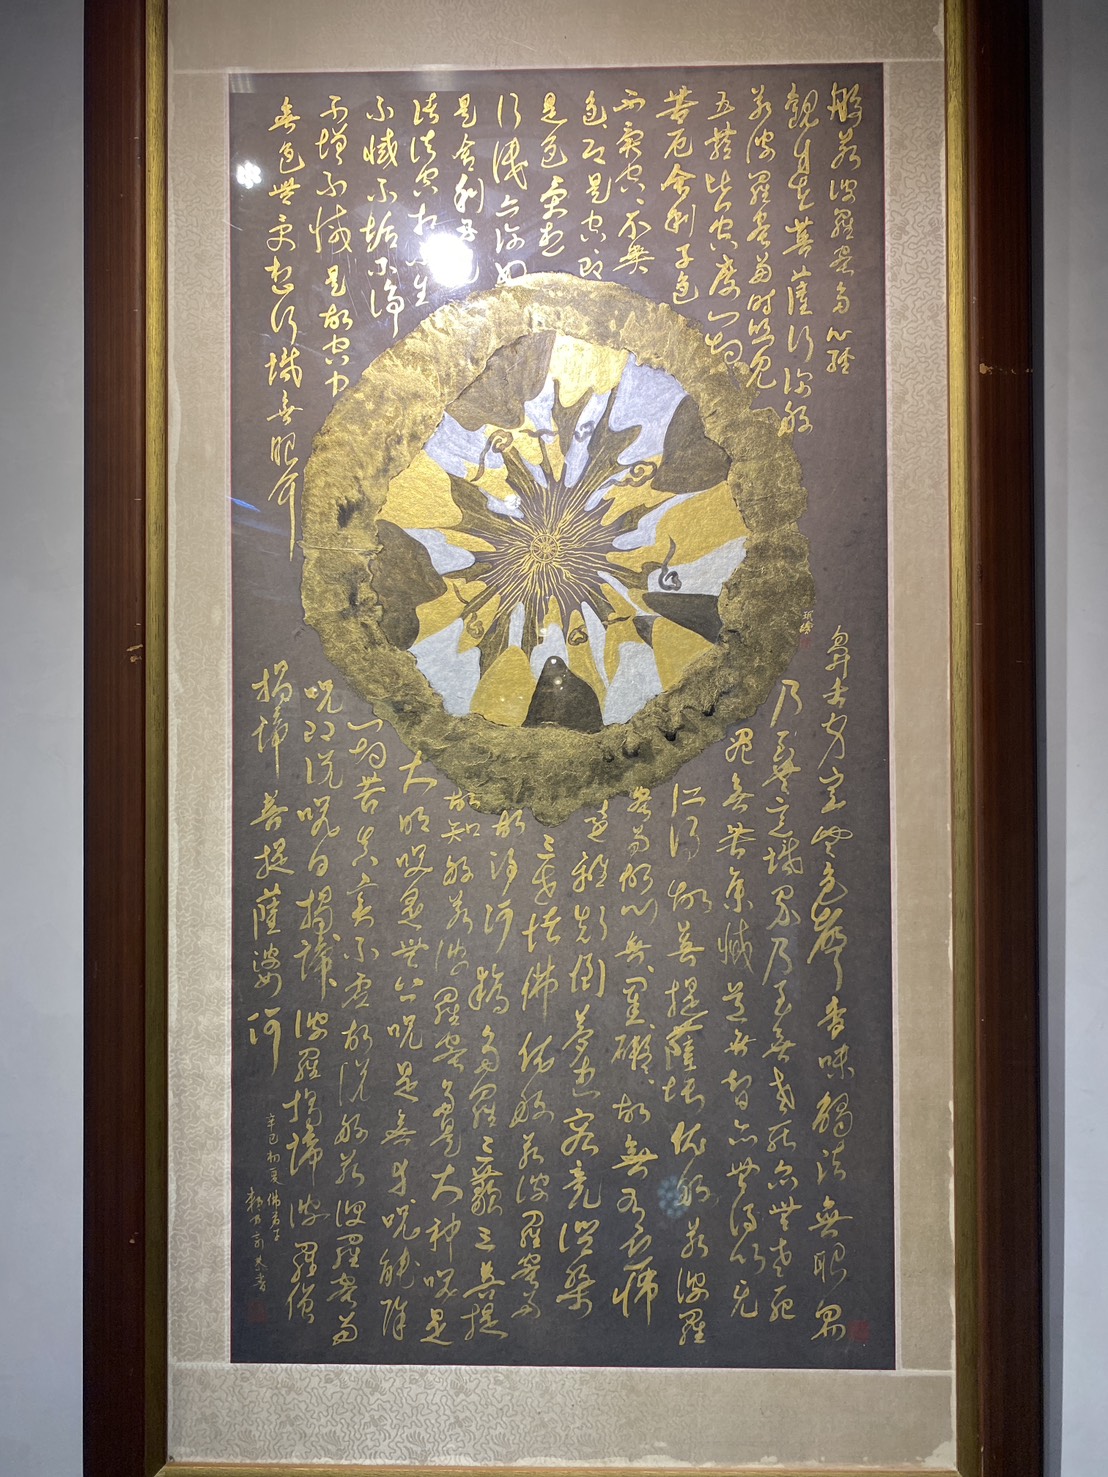 般若波羅蜜多心經
觀自在菩薩行深般
若波羅蜜多時照見
五蘊皆空度一切
苦厄舍利子色
不異空空不異
色色即是空空即
是色受想
行識亦復如
是舍利子是
諸法空相不生
不滅不垢不淨
不增不減是故空中
無色無受想行識無眼耳
鼻舌身意無色聲香味觸法無眼界
乃至無意識界乃至無老死亦無老死
盡無苦集滅道無智亦無得以無
所得故菩提薩埵依般若波羅
蜜多故心無罣礙罣礙故無有恐怖
遠離顛倒夢想究竟涅槃
三世諸佛依般若波羅蜜多
故得阿耨多羅三藐三菩提
故知般若波羅蜜多是大神咒是
大明咒是無上咒是無等咒能除
一切苦真實不虛故說般若波羅蜜多
咒即說咒曰揭諦揭諦波羅揭諦波羅僧
揭諦菩提薩婆訶
辛巳初夏佛弟子